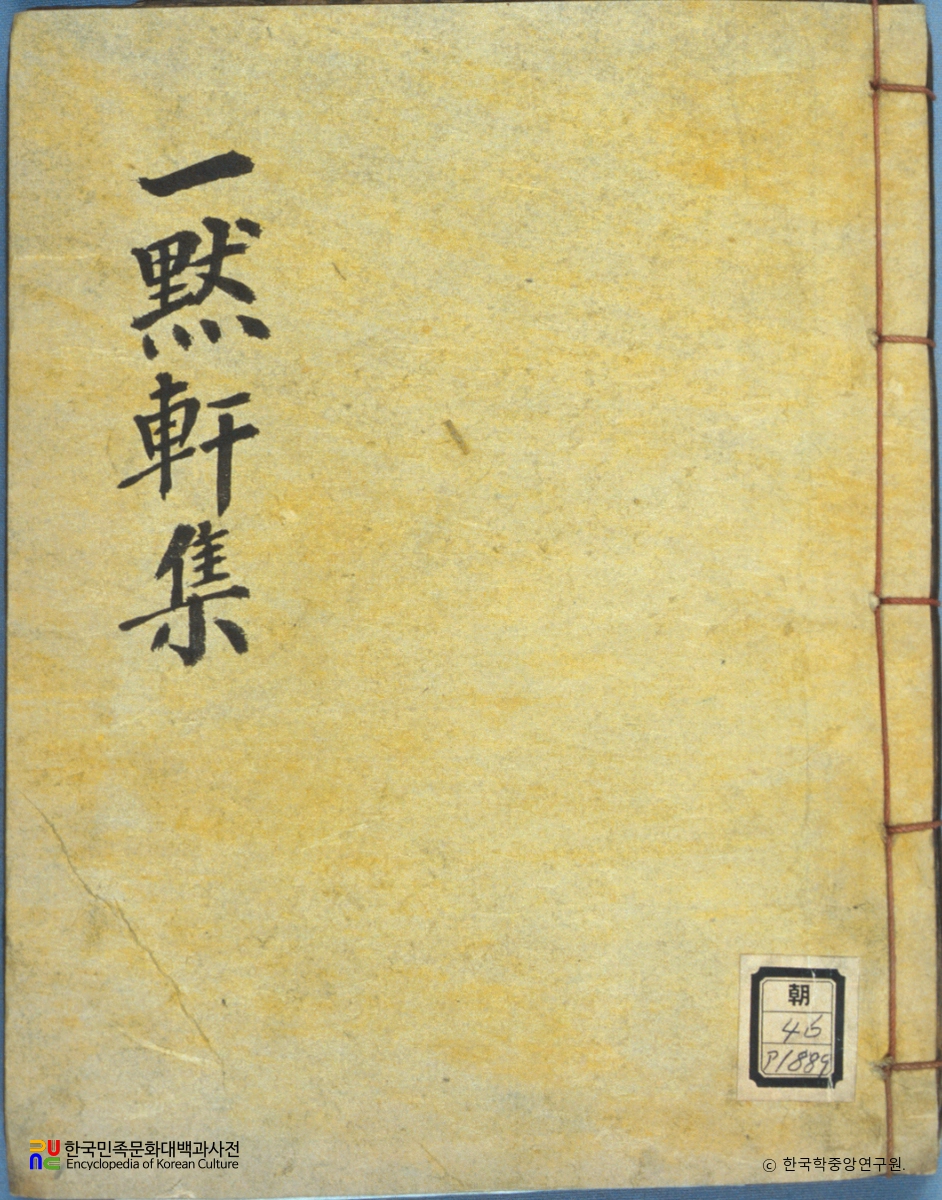 一默軒集
朝
46
P1889
한국민족문화대백과사전
Encyclopedia of Korean Culture
ⓒ 한국학중앙연구원.